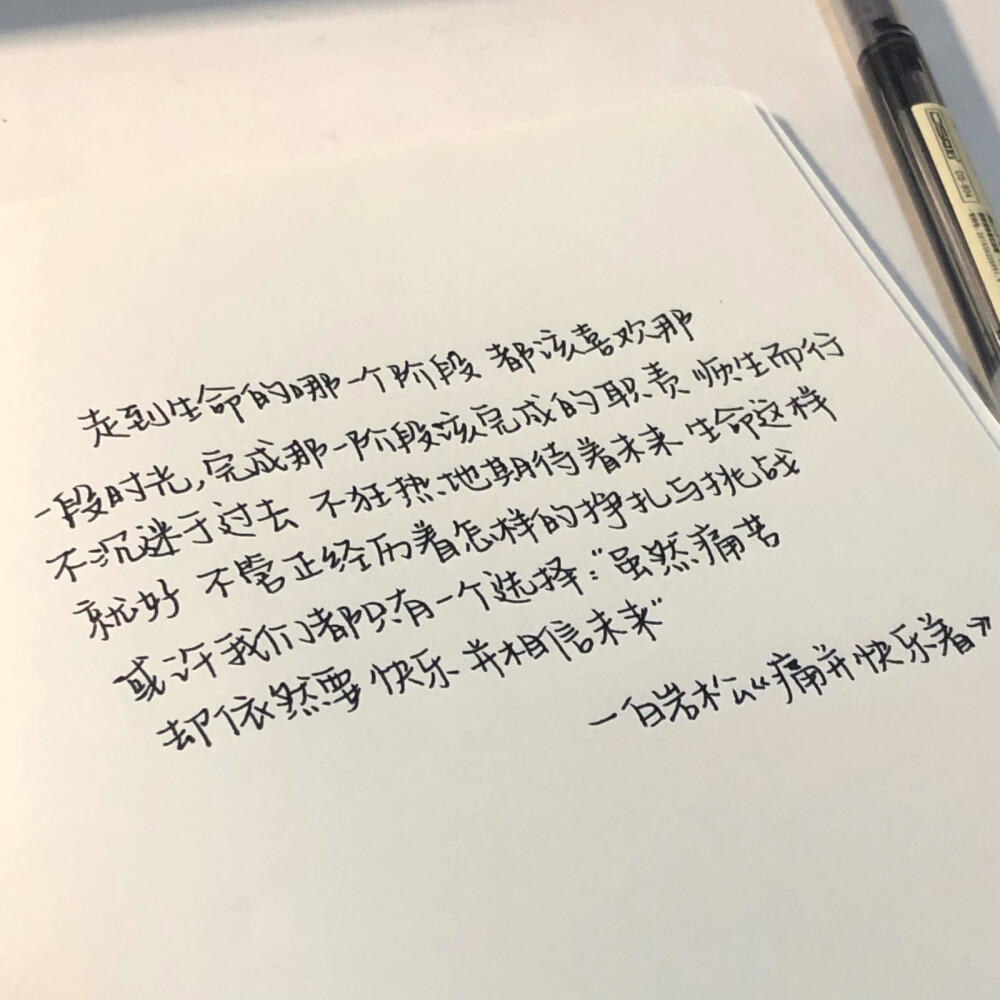 走到生命的哪一个阶段 都该喜欢那
一段时光,完成那一阶段该完成的职责 顺生而行
不沉迷于过去 不狂热地期待着未来 生命这样
就好 不管正经历着怎样的挣扎与挑战
或许我们都只有一个选择:"虽然痛苦
却依然要快乐 并相信未来"
—白岩松《痛并快乐着》